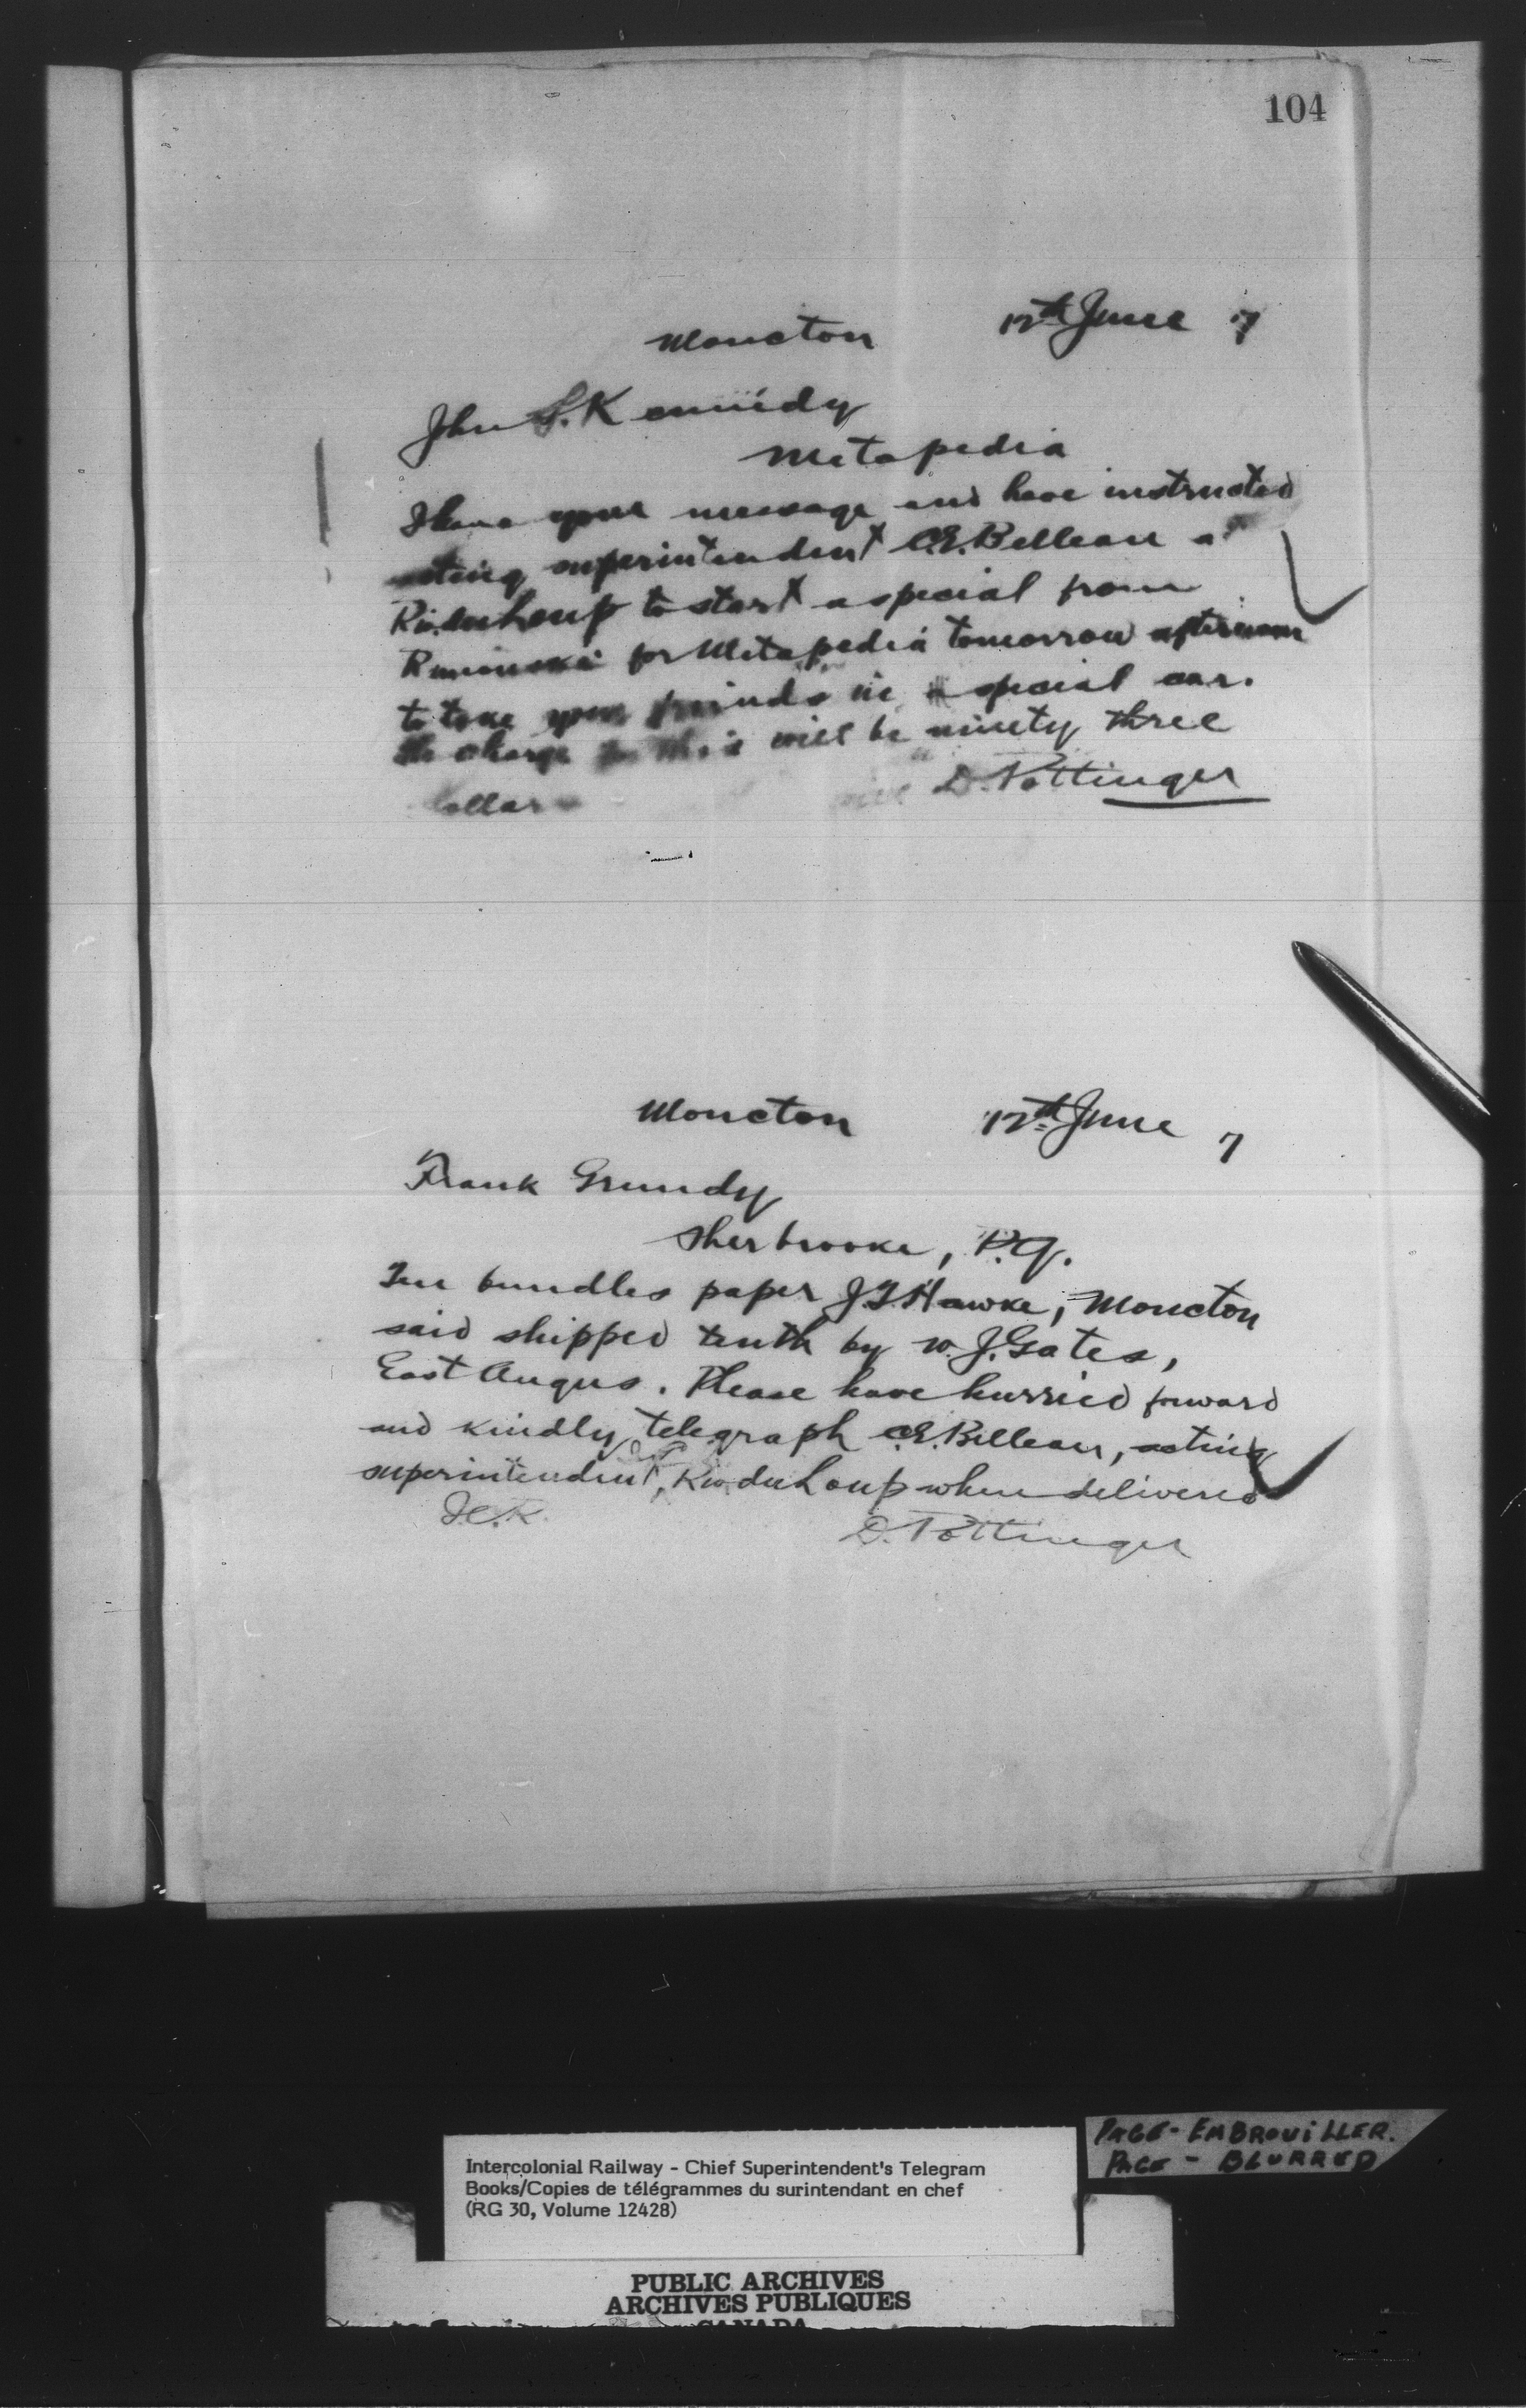 104
Moncton 12th June 7
Jhn S. Kennedy
Metapedia
I have your message and have instructed
acting superintendent C.E. Belleau at
Riv. du Loup to start a special from
Rimouski for Metapedia tomorrow afternoon
to take your friends in a special car.
The charge for this will be ninety three
dollars D. Pottinger
Moncton 12th June 7
Frank Grundy
Sherbrooke, P.Q.
Ten bundles paper J.T. Hawke, Moncton
said shipped tenth by W.J. Gates,
East Angus. Please have hurried forward
and kindly telegraph C.E. Belleau, acting
superintendent, Riv du Loup when delivered
D. Pottinger
PAGE - EMBROUILLER.
PAGE - BLURRED
Intercolonial Railway - Chief Superintendent's Telegram
Books/Copies de télégrammes du surintendant en chef
(RG 30, Volume 12428)
PUBLIC ARCHIVES
ARCHIVES PUBLIQUES
CANADA